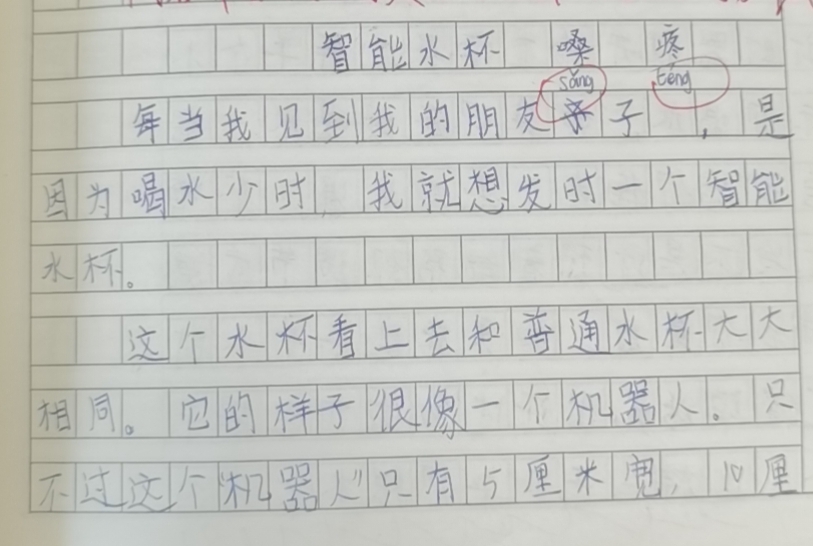 智能水杯 嗓 疼
sǎng téng
每当我见到我的朋友子，是
因为喝水少时，我就想发时一个智能
水杯。
这个水杯看上去和普通水杯大大
相同。它的样子很像一个机器人。只
不过这个“机器人”只有5厘米宽，10厘